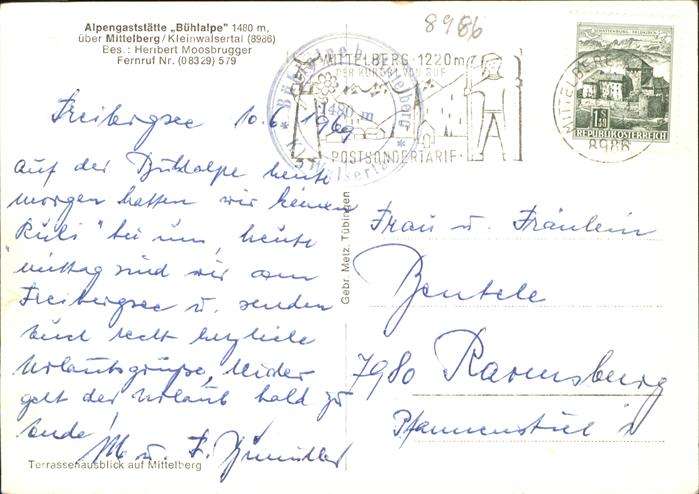 Alpengaststätte „Bühlalpe" 1480 m,
über Mittelberg / Kleinwalsertal (8986)
Bes.: Heribert Moosbrugger
Fernruf Nr. (08329) 579
8986
MITTELBERG · 1220 m
DER KURORT VON RUF
POSTSONDERTARIF
Bühlalpe b. Mittelberg
1480 m
Kl. Walsertal
MITTELBERG
8986
SCHATTENBURG - FELDKIRCH
REPUBLIK ÖSTERREICH
Freibergsee 10.6.1969
Auf der Bühlalpe heute
morgen hatten wir keinen
"Kuli" bei uns, heute
mittag sind wir am
Freibergsee u. senden
Euch recht herzliche
Urlaubsgrüße, leider
geht der Urlaub bald zu
Ende!
M. u. F.
Terrassenausblick auf Mittelberg
Gebr. Metz, Tübingen
Frau u. Fräulein
Bentele
7980 Ravensburg
Pfannenstiel